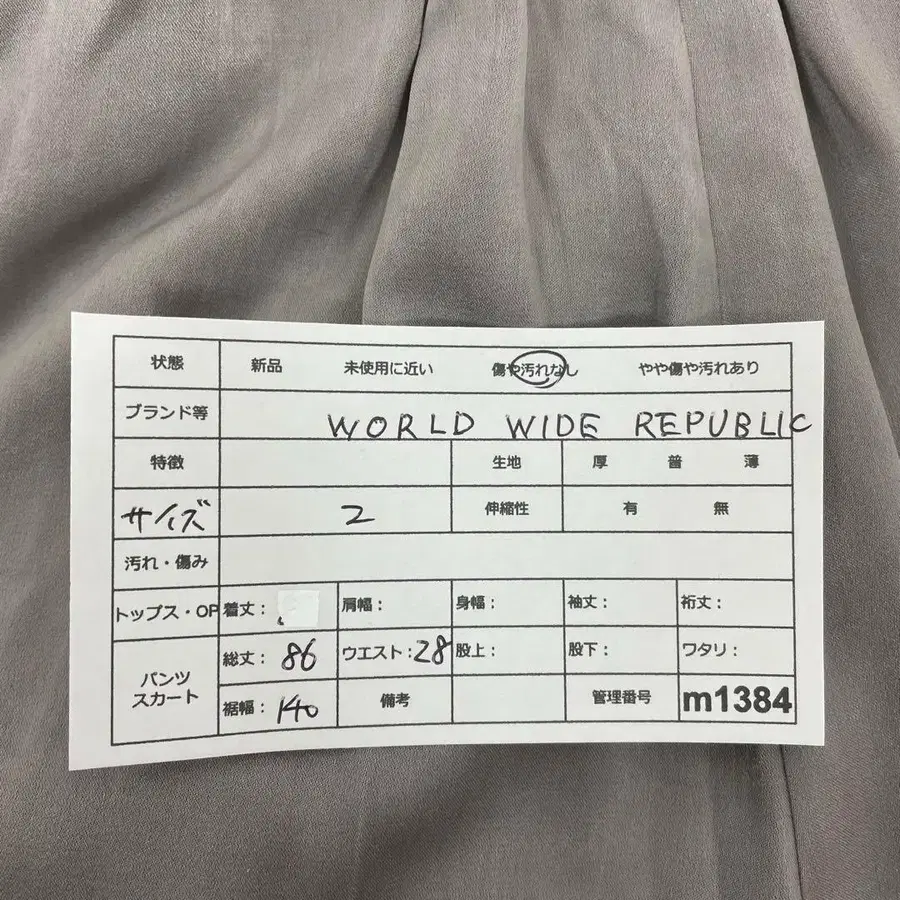 状態 新品 未使用に近い 傷や汚れなし やや傷や汚れあり
ブランド等 WORLD WIDE REPUBLIC
特徴 生地 厚 普 薄
サイズ 2 伸縮性 有 無
汚れ・傷み
トップス・OP 着丈: 肩幅: 身幅: 袖丈: 裄丈:
パンツ スカート 総丈: 86 ウエスト: 28 股上: 股下: ワタリ:
裾幅: 140 備考 管理番号 m1384